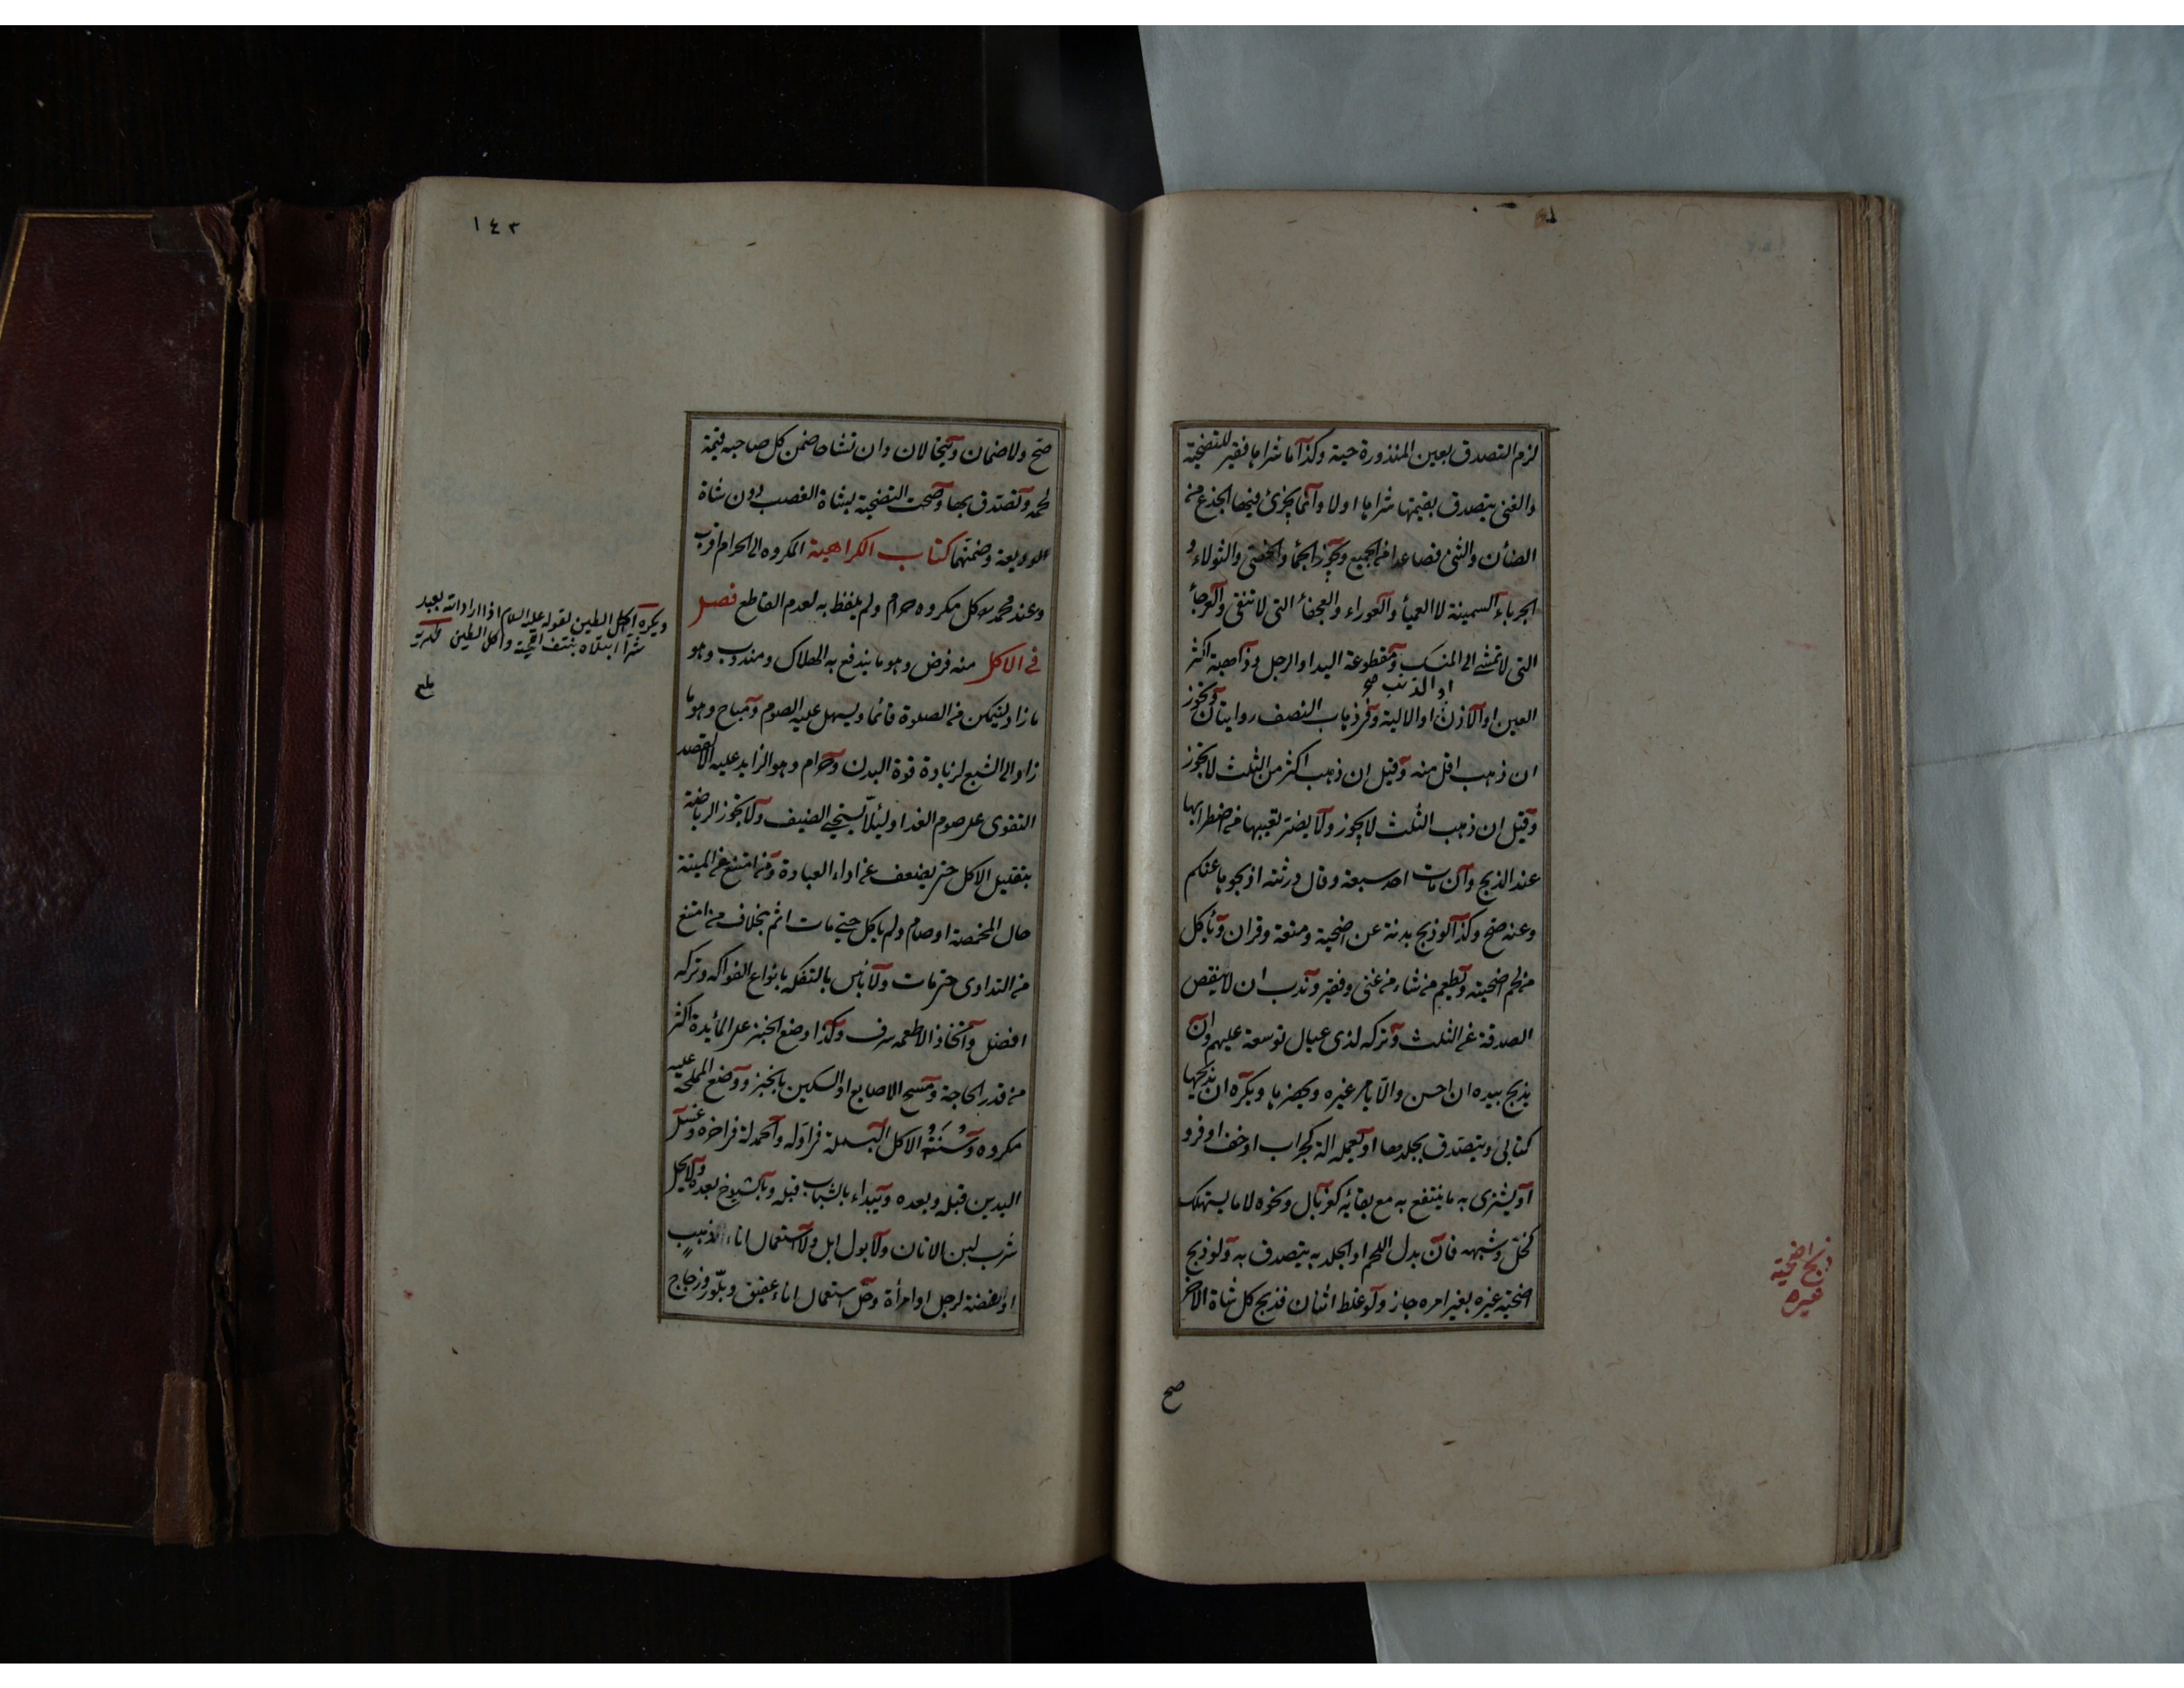 لزم التصدق بعين المنذورة حية وكذا ما شراها فقير للتضحية
والغنى يتصدق بقيمتها شراها اولا وانما يجزئ فيها الجذع من
الضأن والثنى فصاعدا من الجميع ويجوز الجماء والخصى والثولاء و
الجرباء السمينة لا العمياء والعوراء والعجفاء التى لا تنقى والعرجاء
التى لا تمشى الى المنسك ومقطوعة اليد او الرجل وذاهبة اكثر
العين او الاذن او الالية وفى ذهاب النصف روايتان ويجوز
او الذنب صح
ان ذهب اقل منه وقيل ان ذهب اكثر من الثلث لا يجوز
وقيل ان ذهب الثلث لا يجوز ولا يضر تعيبها من اضطرابها
عند الذبح وان مات احد سبعة وقال ورثته اذبحوها عنكم
وعنه صح وكذا لو ذبح بدنة عن اضحية ومتعة وقران ويأكل
من لحم اضحيته ويطعم من شاء من غنى وفقير وندب ان لا ينقص
الصدقة عن الثلث وتركه لذى عيال توسعة عليهم وان
يذبح بيده ان احسن والا يامر غيره ويحضرها ويكره ان يذبحها
كتابى ويتصدق بجلدها او يعمله الة كجراب او خف او فرو
او يشترى به ما ينتفع به مع بقائه كغربال ونحوه لا ما يستهلك
كخل وشبهه فان بدل اللحم او الجلد به يتصدق به ولو ذبح
اضحية غيره بغير امره جاز ولو غلط اثنان فذبح كل شاة الاخر
ذبح اضحية
غيره
صح
١٤٣
صح ولا ضمان ويتحالان وان تشاحا ضمن كل صاحبه قيمة
لحمه وتصدق بها وصحت التضحية بشاة الغصب دون شاة
الوديعة وضمنها كتاب الكراهية المكروه الى الحرام اقرب
وعند محمد كل مكروه حرام ولم يلفظ به لعدم القاطع فصل
فى الاكل منه فرض وهو ما يندفع به الهلاك ومندوب وهو
ما زاد ليتمكن من الصلوة قائما ويسهل عليه الصوم ومباح وهو ما
زاد الى الشبع لزيادة قوة البدن وحرام وهو الزايد عليه الا لقصد
التقوى على صوم الغد او لئلا يستحيى الضيف ولا يجوز الرياضة
بتقليل الاكل حتى يضعف عن اداء العبادة ومن امتنع عن الميتة
حال المخمصة او صام ولم ياكل حتى مات اثم بخلاف من امتنع
من التداوى حتى مات ولا بأس بالتفكه بانواع الفواكه وتركه
افضل واتخاذ الاطعمة سرف وكذا وضع الخبز على المائدة اكثر
من قدر الحاجة ومسح الاصابع او السكين بالخبز ووضع المملحة عليه
مكروه وسنة الاكل البسملة فى اوله والحمدلة فى اخره وغسل
اليدين قبله وبعده ويبداء بالشباب قبله وبالشيوخ بعده ولا يحل
شرب لبن الاتان ولا بول ابل ولا استعمال اناء الذهب
او الفضة لرجل او امرأة وحل استعمال اناء عقيق وبلور وزجاج
ويكره اكل الطين لقوله عليه السلام اذا اراد الله بعبد
شرا ابتلاه بنتف لحيته واكل الطين